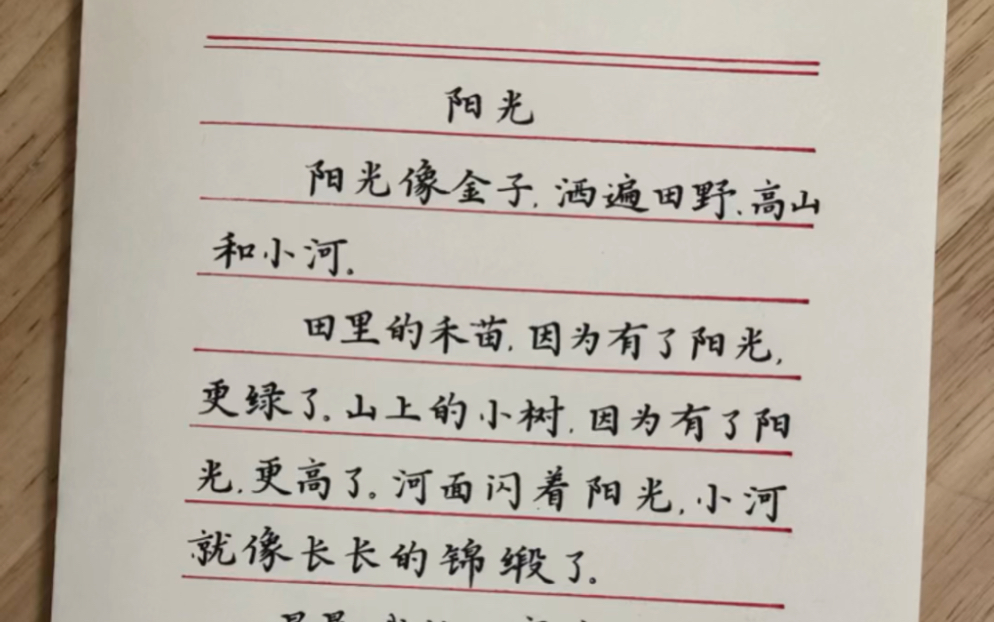 阳光
阳光像金子,洒遍田野、高山
和小河。
田里的禾苗,因为有了阳光,
更绿了。山上的小树,因为有了阳
光,更高了。河面闪着阳光,小河
就像长长的锦缎了。